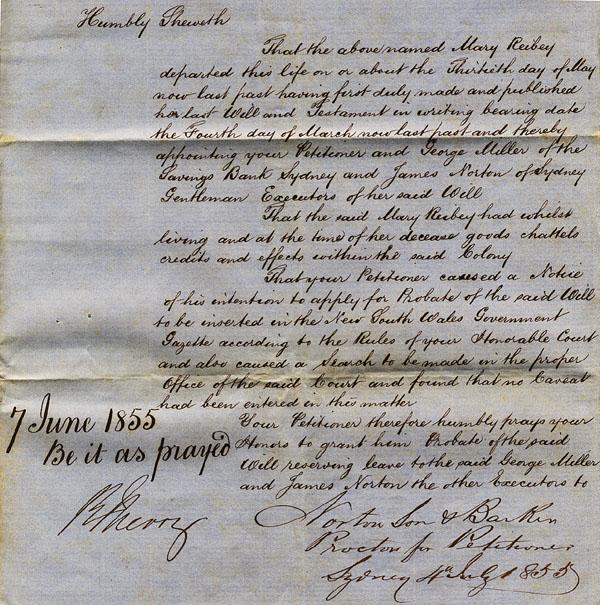 Humbly Sheweth
That the above named Mary Reibey
departed this life on or about the Thirtieth day of May
now last past having first duly made and published
her last Will and Testament in writing bearing date
the Fourth day of March now last past and thereby
appointing your Petitioner and George Miller of the
Savings Bank Sydney and James Norton of Sydney
Gentleman Executors of her said Will
That the said Mary Reibey had whilst
living and at the time of her decease goods chattels
credits and effects within the said Colony
That your Petitioner caused a Notice
of his intention to apply for Probate of the said Will
to be inserted in the New South Wales Government
Gazette according to the Rules of your Honorable Court
and also caused a Search to be made in the proper
Office of the said Court and found that no Caveat
had been entered in this matter
Your Petitioner therefore humbly prays your
Honors to grant him Probate of the said
Will reserving leave to the said George Miller
and James Norton the other Executors to
7 June 1855
Be it as prayed
Norton Son & Barker
Proctors for Petitioner
Sydney 4th July 1855